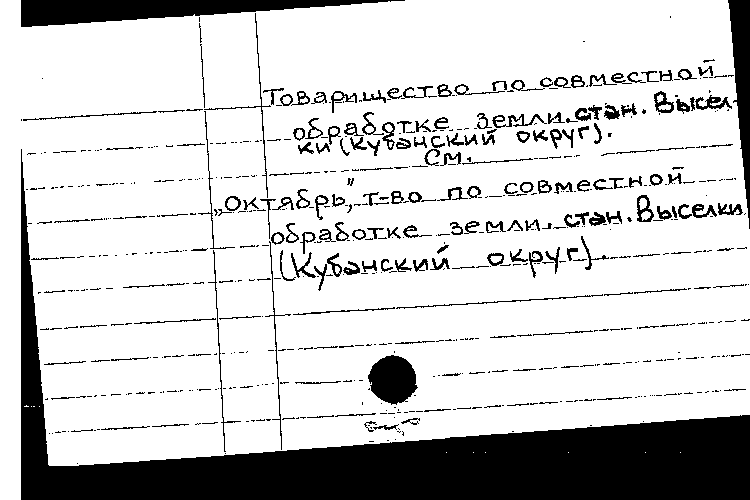 Товарищество по совместной
обработке земли. стан. Высел-
ки (Кубанский округ).
См.
„Октябрь", т-во по совместной
обработке земли, стан. Выселки
(Кубанский округ).